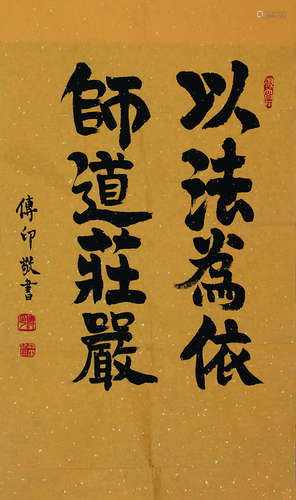 以法為依
師道莊嚴
傳印敬書